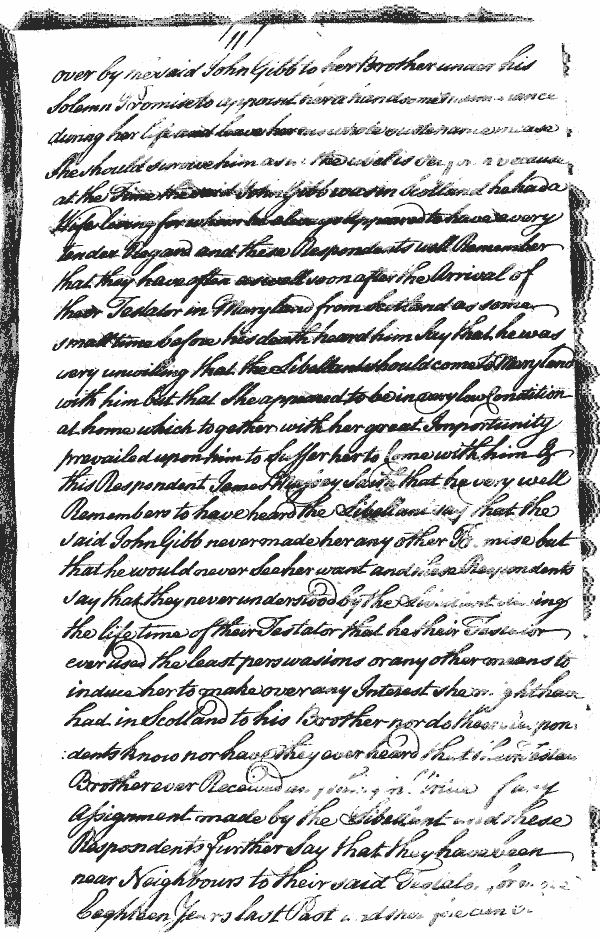 111
over by the said John Gibb to her Brother under his
Solemn Promise to appoint her a handsome
during her life and leave her in case
She should survive him as in the Libel is because
at the Time the said John Gibb was in Scotland he had a
Wife living for whom he always appeared to have a very
tender Regard and these Respondents well Remember
that they have often as well soon after the Arrival of
their Testator in Maryland from Scotland as some
small time before his death heard him Say that he was
very unwilling that the Libellant should come to Maryland
with him but that She appeared to be in a very low Condition
at home which together with her great Importunity
prevailed upon him to Suffer her to Come with him &
this Respondent James Saith that he very well
Remembers to have heard the Libellant say that the
said John Gibb never made her any other Promise but
that he would never See her want and these Respondents
say that they never understood by the Libellant during
the life time of their Testator that he their Testator
ever used the least perswasions or any other means to
induce her to make over any Interest she might have
had in Scotland to his Brother nor do these Respon
dents know nor have they ever heard that their
Brother ever Received any
Assignment made by the Libellant and these
Respondents further Say that they have been
near Neighbours to their said Testator for
Eeghteen Years last Past and